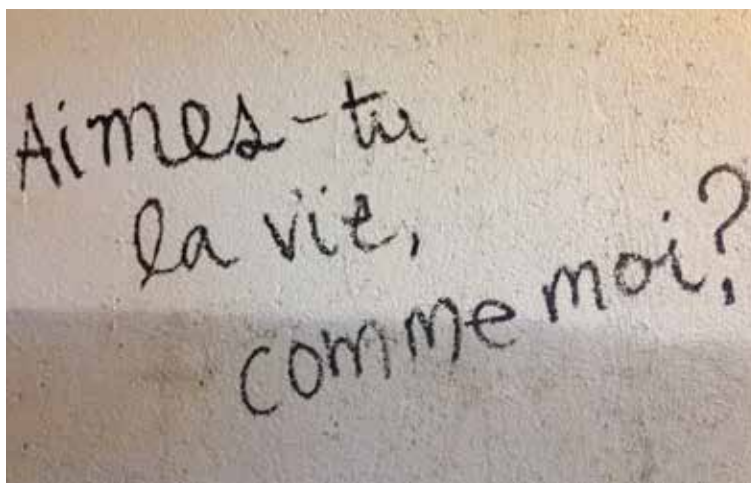 Aimes-tu
la vie,
comme moi?